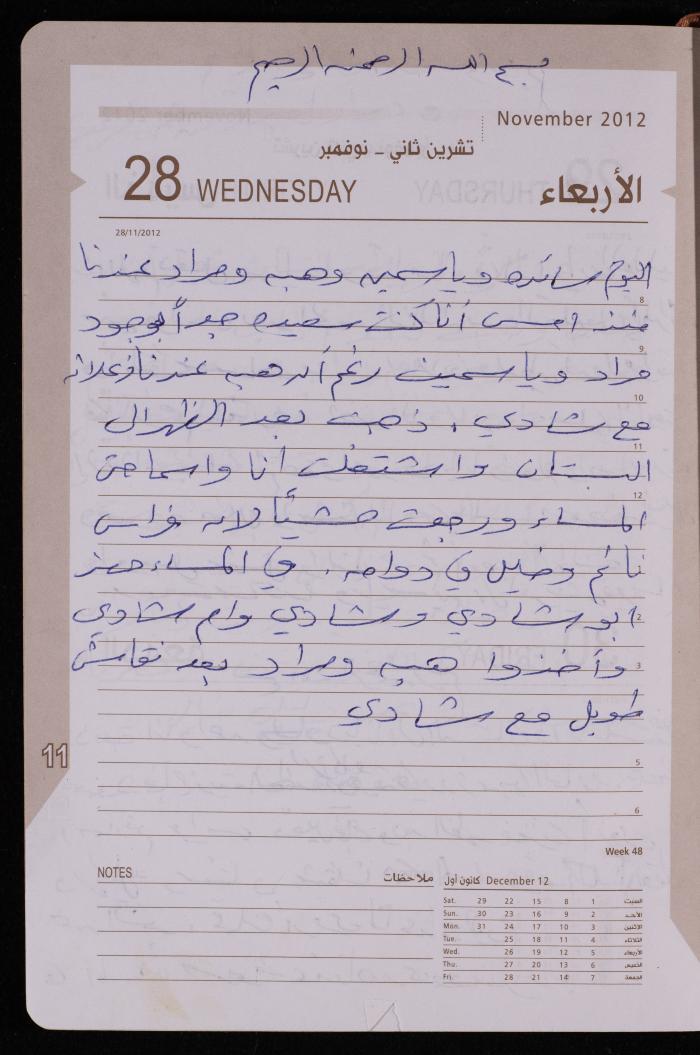 بسم الله الرحمن الرحيم
November 2012
تشرين ثاني - نوفمبر
28 WEDNESDAY
الأربعاء
28/11/2012
اليوم سائده وياسمين وهبه ومراد عندنا
8
منذ امس أنا كنت سعيده جداً بوجود
9
مراد وياسمين رغم أن هبه عندنا زعلانه
10
مع شادي. ذهبت بعد الظهر ال
11
البستان واشتغلت أنا واسماحتى
12
المساء ورجعت مشياً لانه فراس
نائم وخليل في دوامه. في المساء حضر
2
ابو شادي وشادي وام شادي
3
وأخذوا هبه ومراد بعد نقاش
طويل مع شادي
5
6
11
Week 48
NOTES ملاحظات
December 12 كانون أول
Sat. 29 22 15 8 1 السبت
Sun. 30 23 16 9 2 الأحد
Mon. 31 24 17 10 3 الإثنين
Tue. 25 18 11 4 الثلاثاء
Wed. 26 19 12 5 الأربعاء
Thu. 27 20 13 6 الخميس
Fri. 28 21 14 7 الجمعة